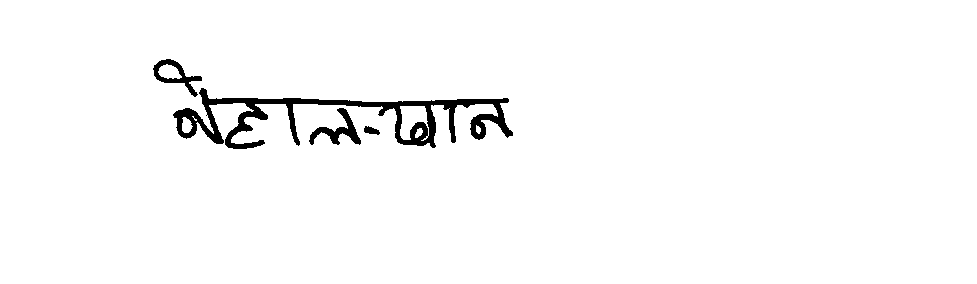 नेहाल-खान